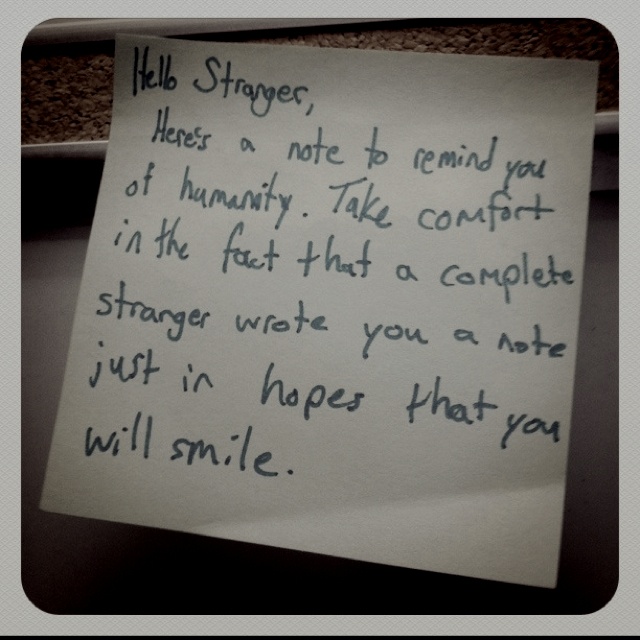 Hello Stranger,
Here's a note to remind you
of humanity. Take comfort
in the fact that a complete
stranger wrote you a note
just in hopes that you
will smile.